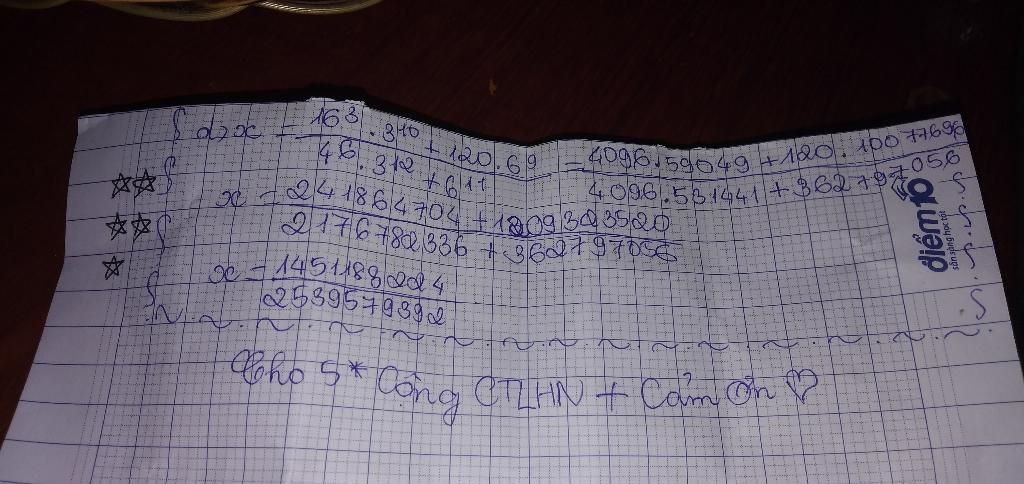 a, x = 16³.3¹⁰ + 120.6⁹ / 4⁶.3¹² + 6¹¹ = 4096.59049 + 120.10077696 / 4096.531441 + 362797056
x = 241864704 + 1209323520 / 2176782336 + 362797056
x = 1451188224 / 2539579392
điểm 10
Cho 5* Cộng CTLHN + Cảm ơn ♡